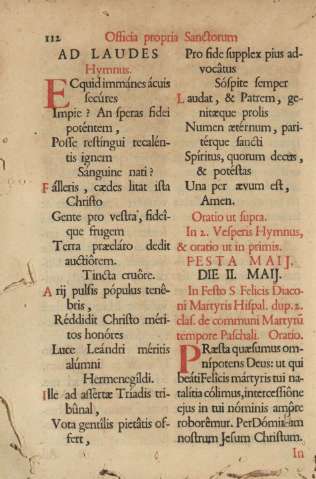 112 Officia propria Sanctorum
AD LAUDES
Hymnus.
ECquid immánes ácuis
secúres
Impie? An speras fidei
poténtem,
Posse restingui recalén-
tis ignem
Sanguine nati?
Fálleris, cædes litat ista
Christo
Gente pro vestra, fideí-
que frugem
Terra præcláro dedit
auctiórem.
Tincta cruóre.
Arij pulsis pópulus tené-
bris,
Réddidit Christo méri-
tos honóres
Luce Leándri méritis
alúmni
Hermenegíldi.
Ille ad assértæ Triadis tri-
búnal,
Vota gentílis pietátis of-
fert,
Pro fide supplex pius ad-
vocâtus
Sóspite semper
Laudat, & Patrem, ge-
nitæque prolis
Numen ætérnum, pari-
térque sancti
Spíritus, quorum decus,
& potéstas
Una per ævum est,
Amen.
Oratio ut supra.
In 2. Vesperis Hymnus,
& oratio ut in primis.
FESTA MAIJ.
DIE II. MAIJ.
In Festo S Felicis Diaco-
ni Martyris Hispal. dup. 2.
clas. de communi Martyrũ
tempore Paschali. Oratio.
PRæsta quæsumus om-
nípotens Deus: ut qui
beáti Felícis mártyris tui na-
talítia cólimus, intercessióne
ejus in tui nóminis amore
roborémur. Per Dóminum
nostrum Jesum Christum.
In